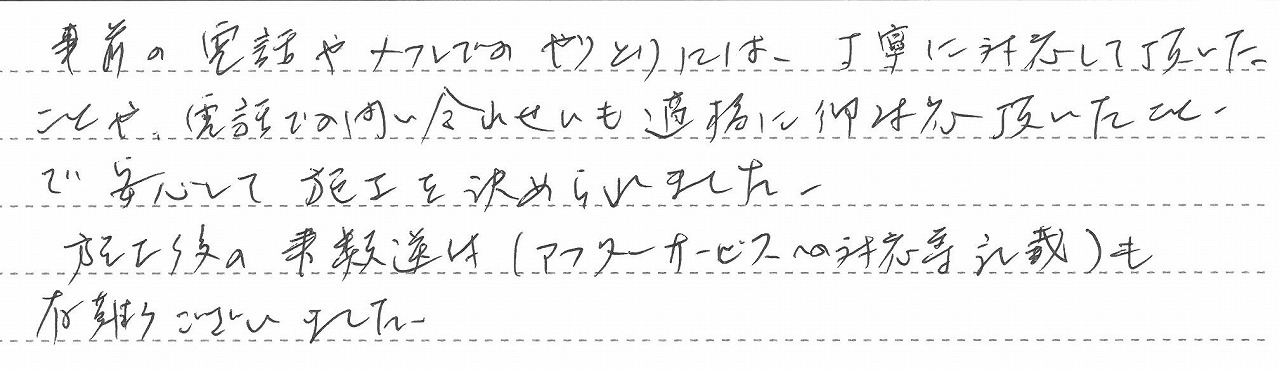 事前の電話やメールでのやりとりには、丁寧に対応して頂いた
ことや、電話での問い合わせにも適格に御対応頂いたこと
で安心して施工を決められました。
施工後の書類送付(アフターサービスへの対応等記載)も
有難うございました。